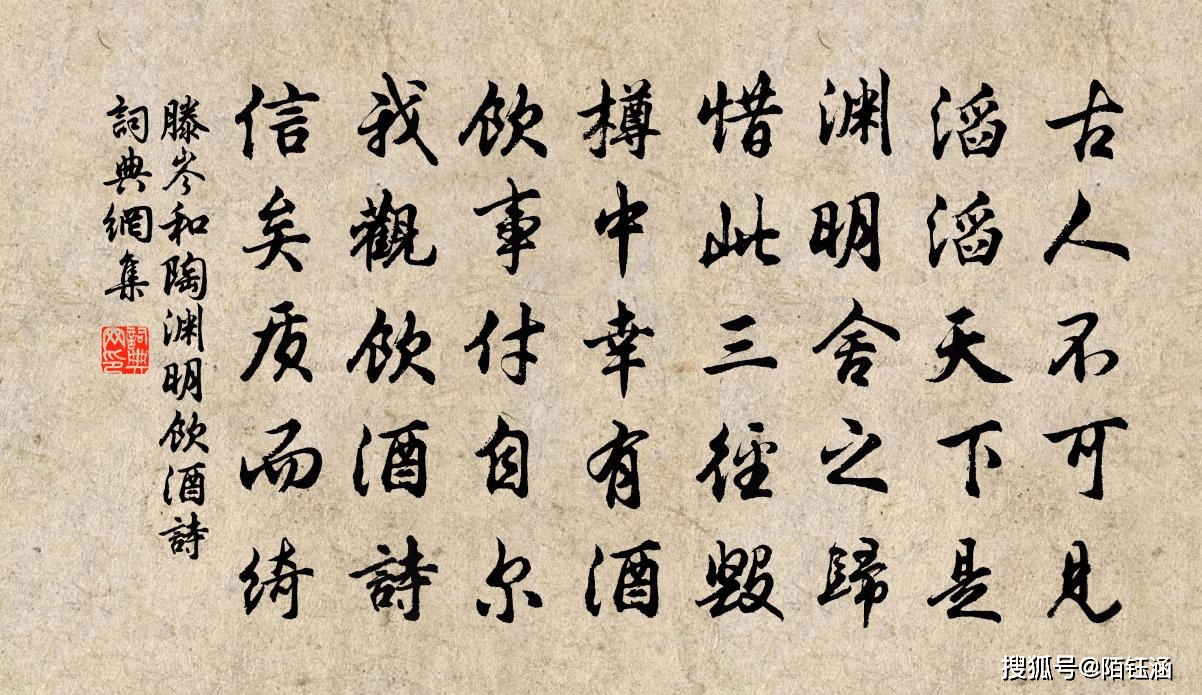 古人不可見
滔滔天下是
渊明舍之歸
惜此三徑毀
樽中幸有酒
飲事付自尔
我觀飲酒詩
信矣质而綺
滕岑和陶渊明飲酒詩
詞典網集
詞典网印
搜狐号@陌钰涵